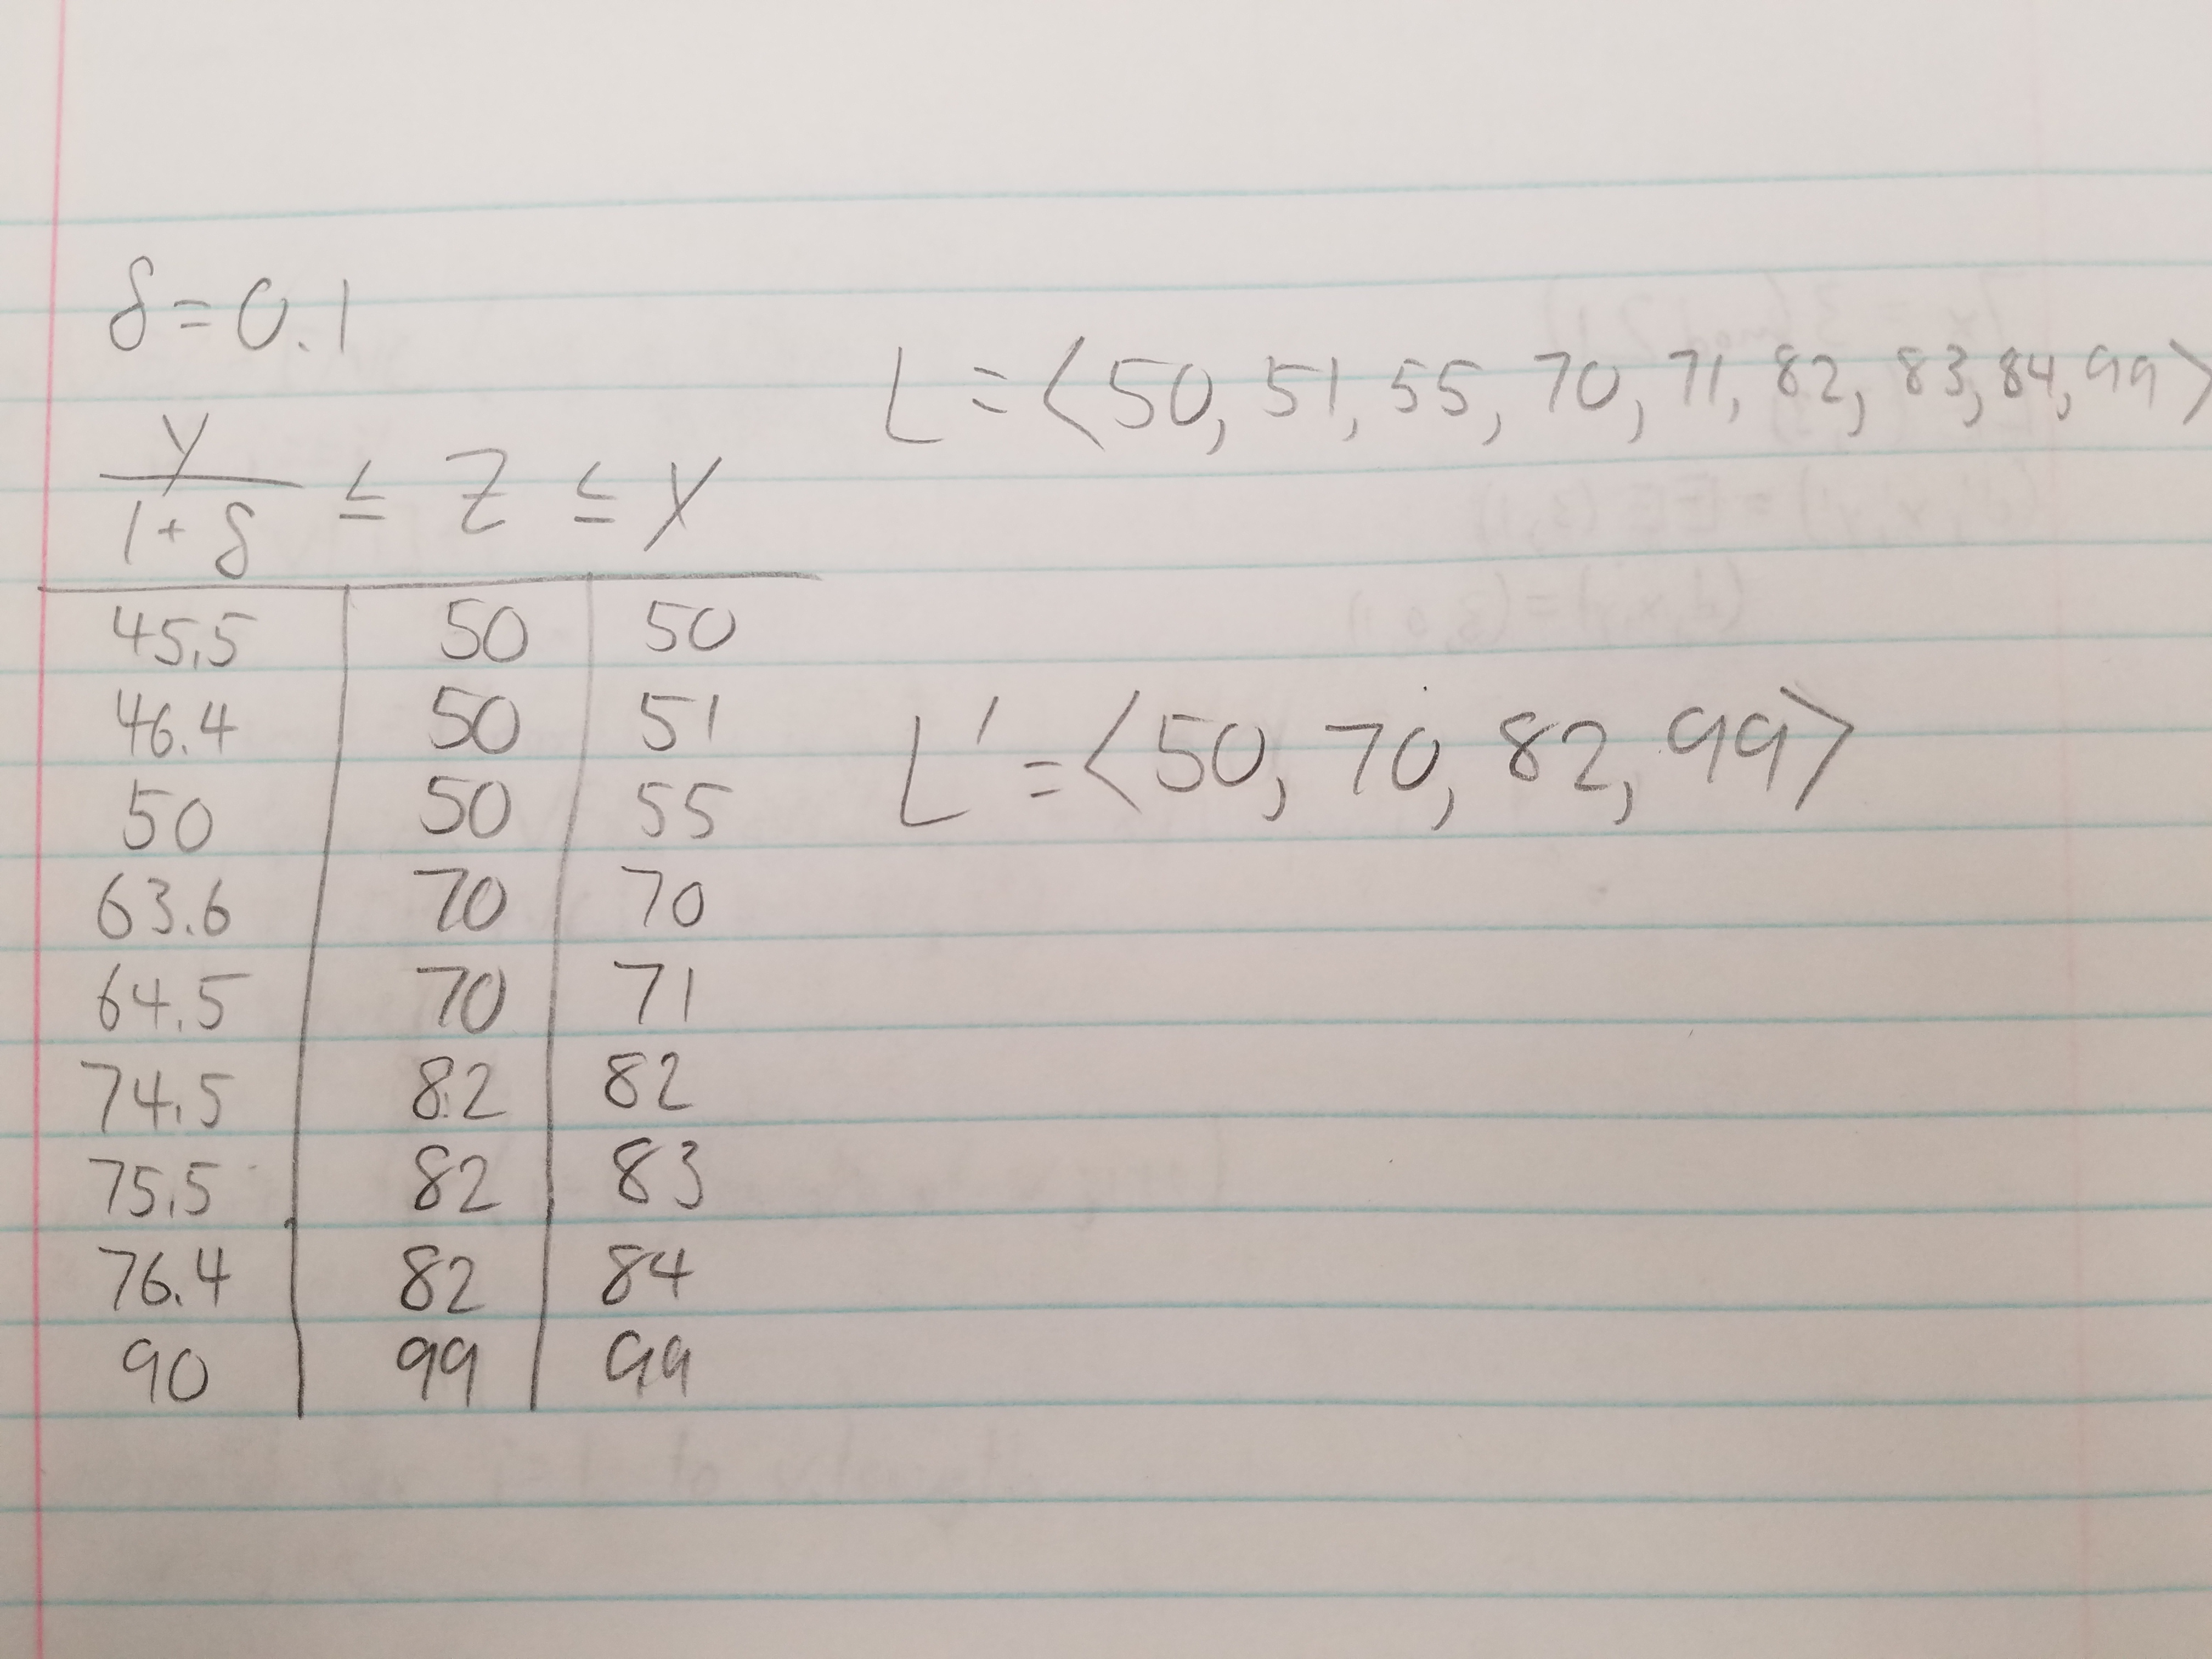 δ = 0.1
L = ⟨50, 51, 55, 70, 71, 82, 83, 84, 99⟩
y / 1+δ ≤ z ≤ y
45.5 | 50 | 50
46.4 | 50 | 51
50 | 50 | 55
63.6 | 70 | 70
64.5 | 70 | 71
74.5 | 82 | 82
75.5 | 82 | 83
76.4 | 82 | 84
90 | 99 | 99
L' = ⟨50, 70, 82, 99⟩